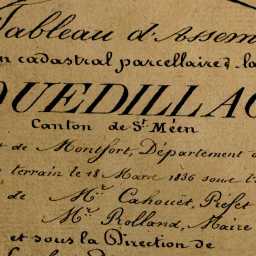 Tableau d'Assem
n cadastral parcellaire d. la
QUEDILLAC
Canton de St. Méen
t de Montfort, Département d
terrain le 18 Mars 1836 sous l'
de Mr. Cahouët, Préfet
Mr. Rolland, Maire
et sous la Direction de